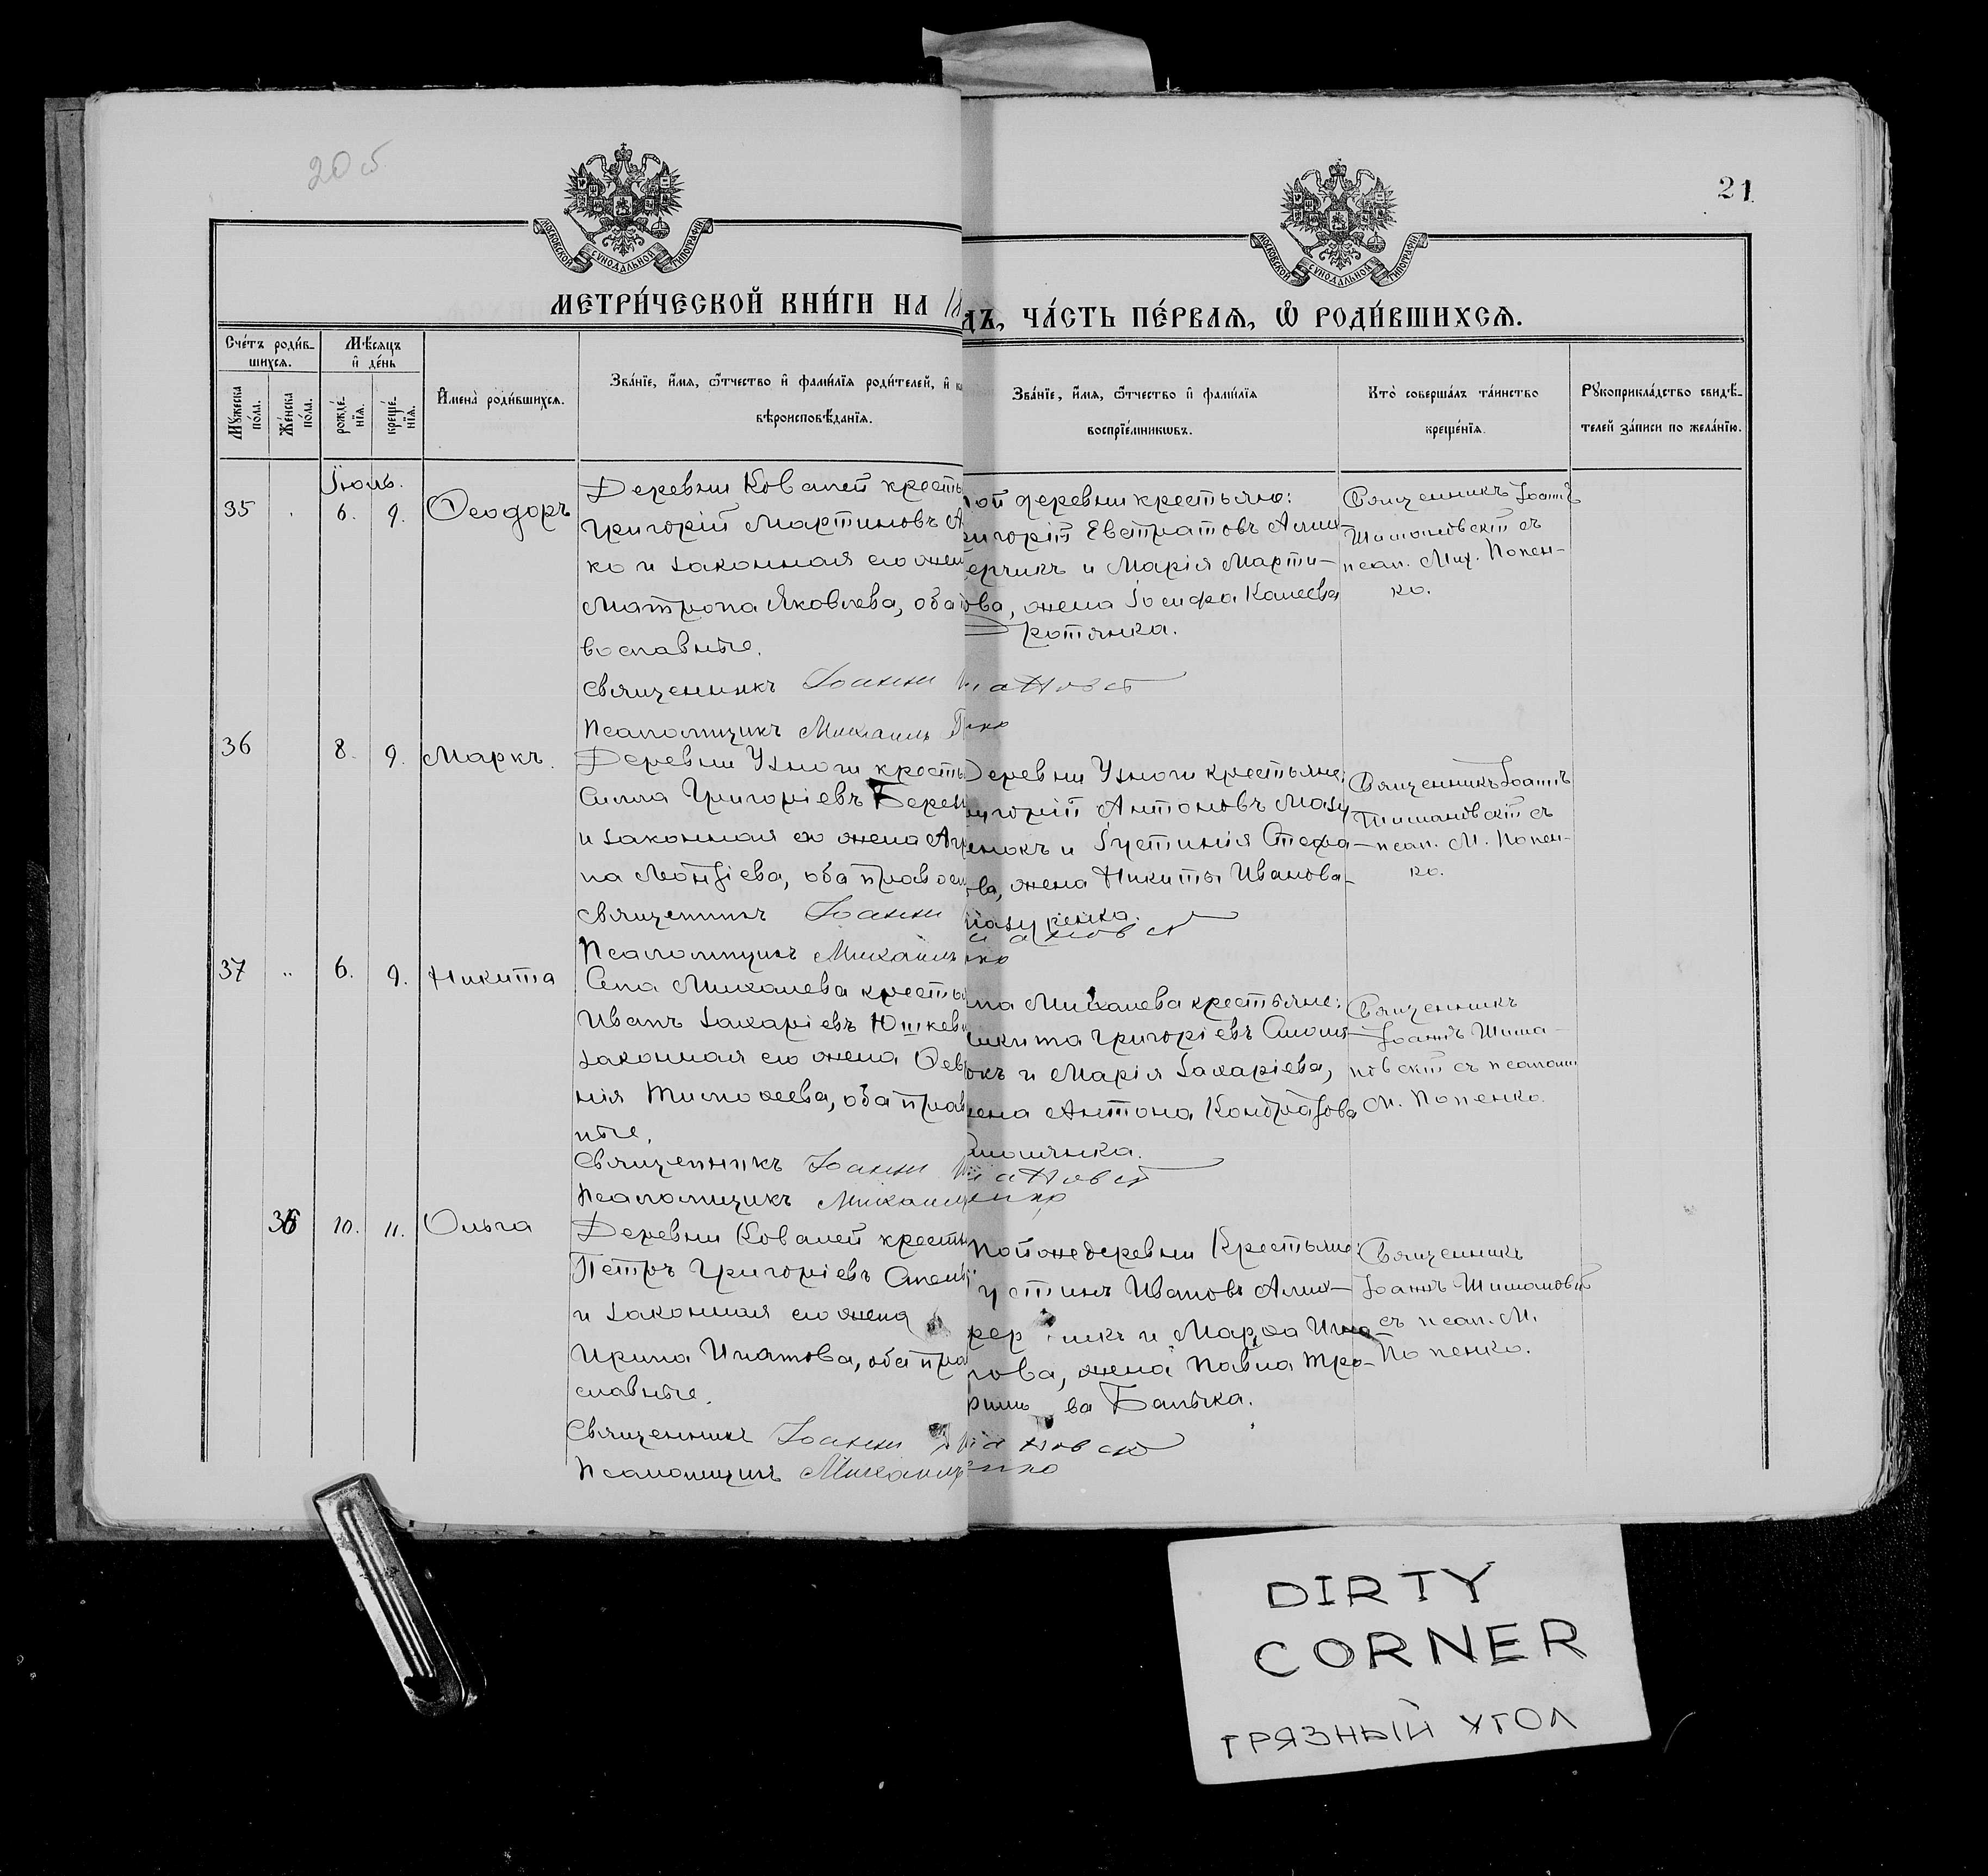 20 об
21
МОСКОВСКОЙ СУНОДАЛЬНОЙ ТИПОГРАФІИ
МОСКОВСКОЙ СУНОДАЛЬНОЙ ТИПОГРАФІИ
МЕТРИ́ЧЕСКОЙ КНИ́ГИ НА 18
ДЪ, ЧА́СТЬ ПЕ́РВАѦ, Ѽ РОДИ́ВШИХСѦ.
Сче́тъ роди́в-
шихсѧ.
Мꙋ́жеска по́ла.
Же́нска по́ла.
Мѣ́сѧцъ
и҆ де́нь
рожде́нїѧ.
креще́нїѧ.
И҆мена̀ роди́вшихсѧ.
Зва́нїе, и҆́мѧ, ѻ҆́тчество и҆ фами́лїѧ роди́телей, и҆
вѣроисповѣ́данїѧ.
Зва́нїе, и҆́мѧ, ѻ҆́тчество и҆ фами́лїѧ
воспрїе́мникѡвъ.
Кто̀ соверша́лъ та́инство
креще́нїѧ.
Рꙋкоприкла́дство свидѣ́-
телей за́писи по жела́нїю.
Іюль.
35 6. 9. Ѳеодоръ
Деревни Ковалей кресть
Григорій Мартиновъ А
ко и законная его жен
Матрона Яковлева, оба
вославные.
Священникъ Іоанн
Псаломщикъ Михаилъ
ой деревни крестьяне:
ригорій Евстратовъ Алих
ерчикъ и Марія Марти-
ова, жена Іосифа Канеева
Кротянка.
Священникъ Іоаннъ
Шимановскій съ
псал. Мих. Попен-
ко.
36 8. 9. Маркъ.
Деревни Узноги кресть
Силла Григоріевъ Берен
и законная его жена Агр
на Леонтіева, оба правос
Священникъ Іоанн
Псаломщикъ Михаилъ
Деревни Узноги крестьяне:
ригорій Антоновъ Мазу
енокъ и Іустинія Стефа
ова, жена Никиты Иванова
Мазуренка.
Священникъ Іоаннъ
Шимановскій съ
псал. М. Попен-
ко.
37 „ 6. 9. Никита
Села Михалева кресть
Иванъ Захаріевъ Юшкев
законная его жена Евѳ
нія Тимоѳеева, оба прав
ные.
Священникъ Іоанн
Псаломщикъ Михаилъ
ла Михалева крестьяне:
икита Григоріевъ Смоля
окъ и Марія Захаріева,
жена Антона Кондратова
Смолянка.
Священникъ
Іоаннъ Шима-
новскій съ псаломщ
М. Попенко.
36 10. 11. Ольга
Деревни Ковалей кресть
Петръ Григоріевъ
и законная его жена
Ирина Игнатова, оба пра
славные.
Священникъ Іоанн
Псаломщикъ Михаилъ
Той же деревни Крестьяне:
устинъ Ивановъ Алих-
вер икъ и Марѳа Игна-
това, жена Павла Тро-
фим ва Балыка.
Священникъ
Іоаннъ Шимановскій
съ псал. М.
Попенко.
DIRTY
CORNER
ГРЯЗНЫЙ УГОЛ